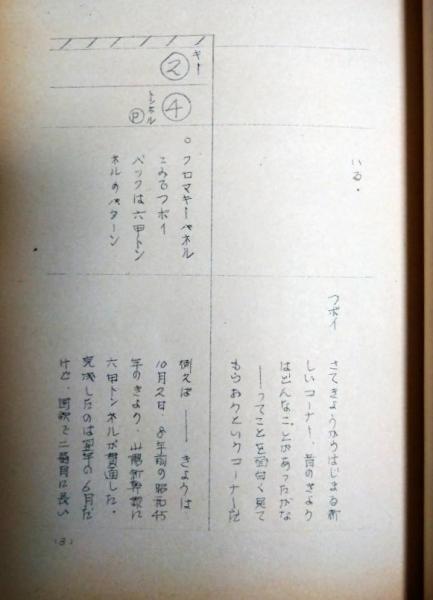 いる。
ツボイ
さてきょうからはじまる新
しいコーナー、昔のきょう
はどんなことがあったかな
――ってことを面白く見て
もらおうというコーナーだ
キー
②
トンネル
④
Ⓟ
○クロマキーパネル
ツボイ
バックは六甲トン
ネルのパターン
例えば――きょうは
10月2日、8年前の昭和45
年のきょう、山陽新幹線に
六甲トンネルが貫通した。
完成したのは翌年の6月だ
けど、国鉄で二番目に長い
(3)